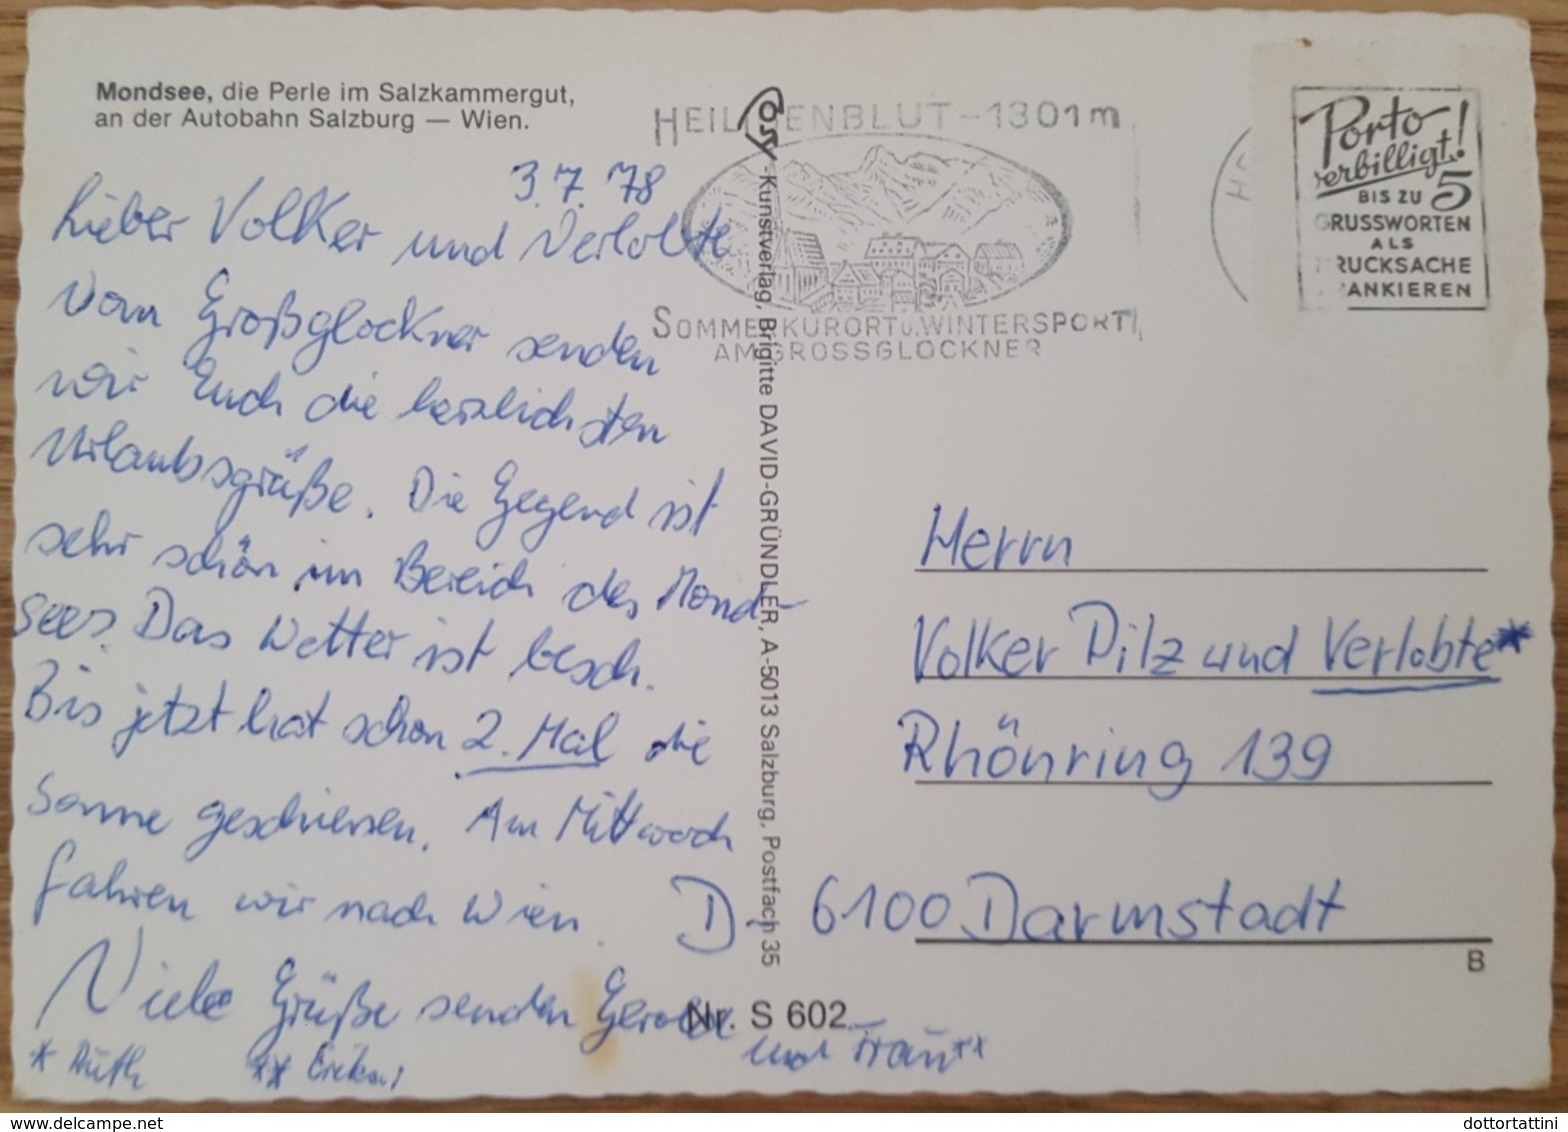 Mondsee, die Perle im Salzkammergut,
an der Autobahn Salzburg — Wien.
3.7.78
Lieber Volker und Verlobte
Vom Großglockner senden
wir Euch die herzlichsten
Urlaubsgrüße. Die Gegend ist
sehr schön im Bereich des Mond-
sees. Das Wetter ist besch.
Bis jetzt hat schon 2. Mal die
Sonne geschienen. Am Mittwoch
fahren wir nach Wien.
Viele Grüße senden
und Frau**
* Ruth
**
HEILIGENBLUT - 1301m
SOMMERKURORT u. WINTERSPORT
AM GROSSGLOCKNER
Cosy-Kunstverlag, Brigitte DAVID-GRÜNDLER, A-5013 Salzburg, Postfach 35
Porto
verbilligt!
BIS ZU 5
GRUSSWORTEN
ALS
DRUCKSACHE
FRANKIEREN
Herrn
Volker Pilz und Verlobte*
Rhönring 139
D - 6100 Darmstadt
B
Nr. S 602
www.delcampe.net
dottortattini